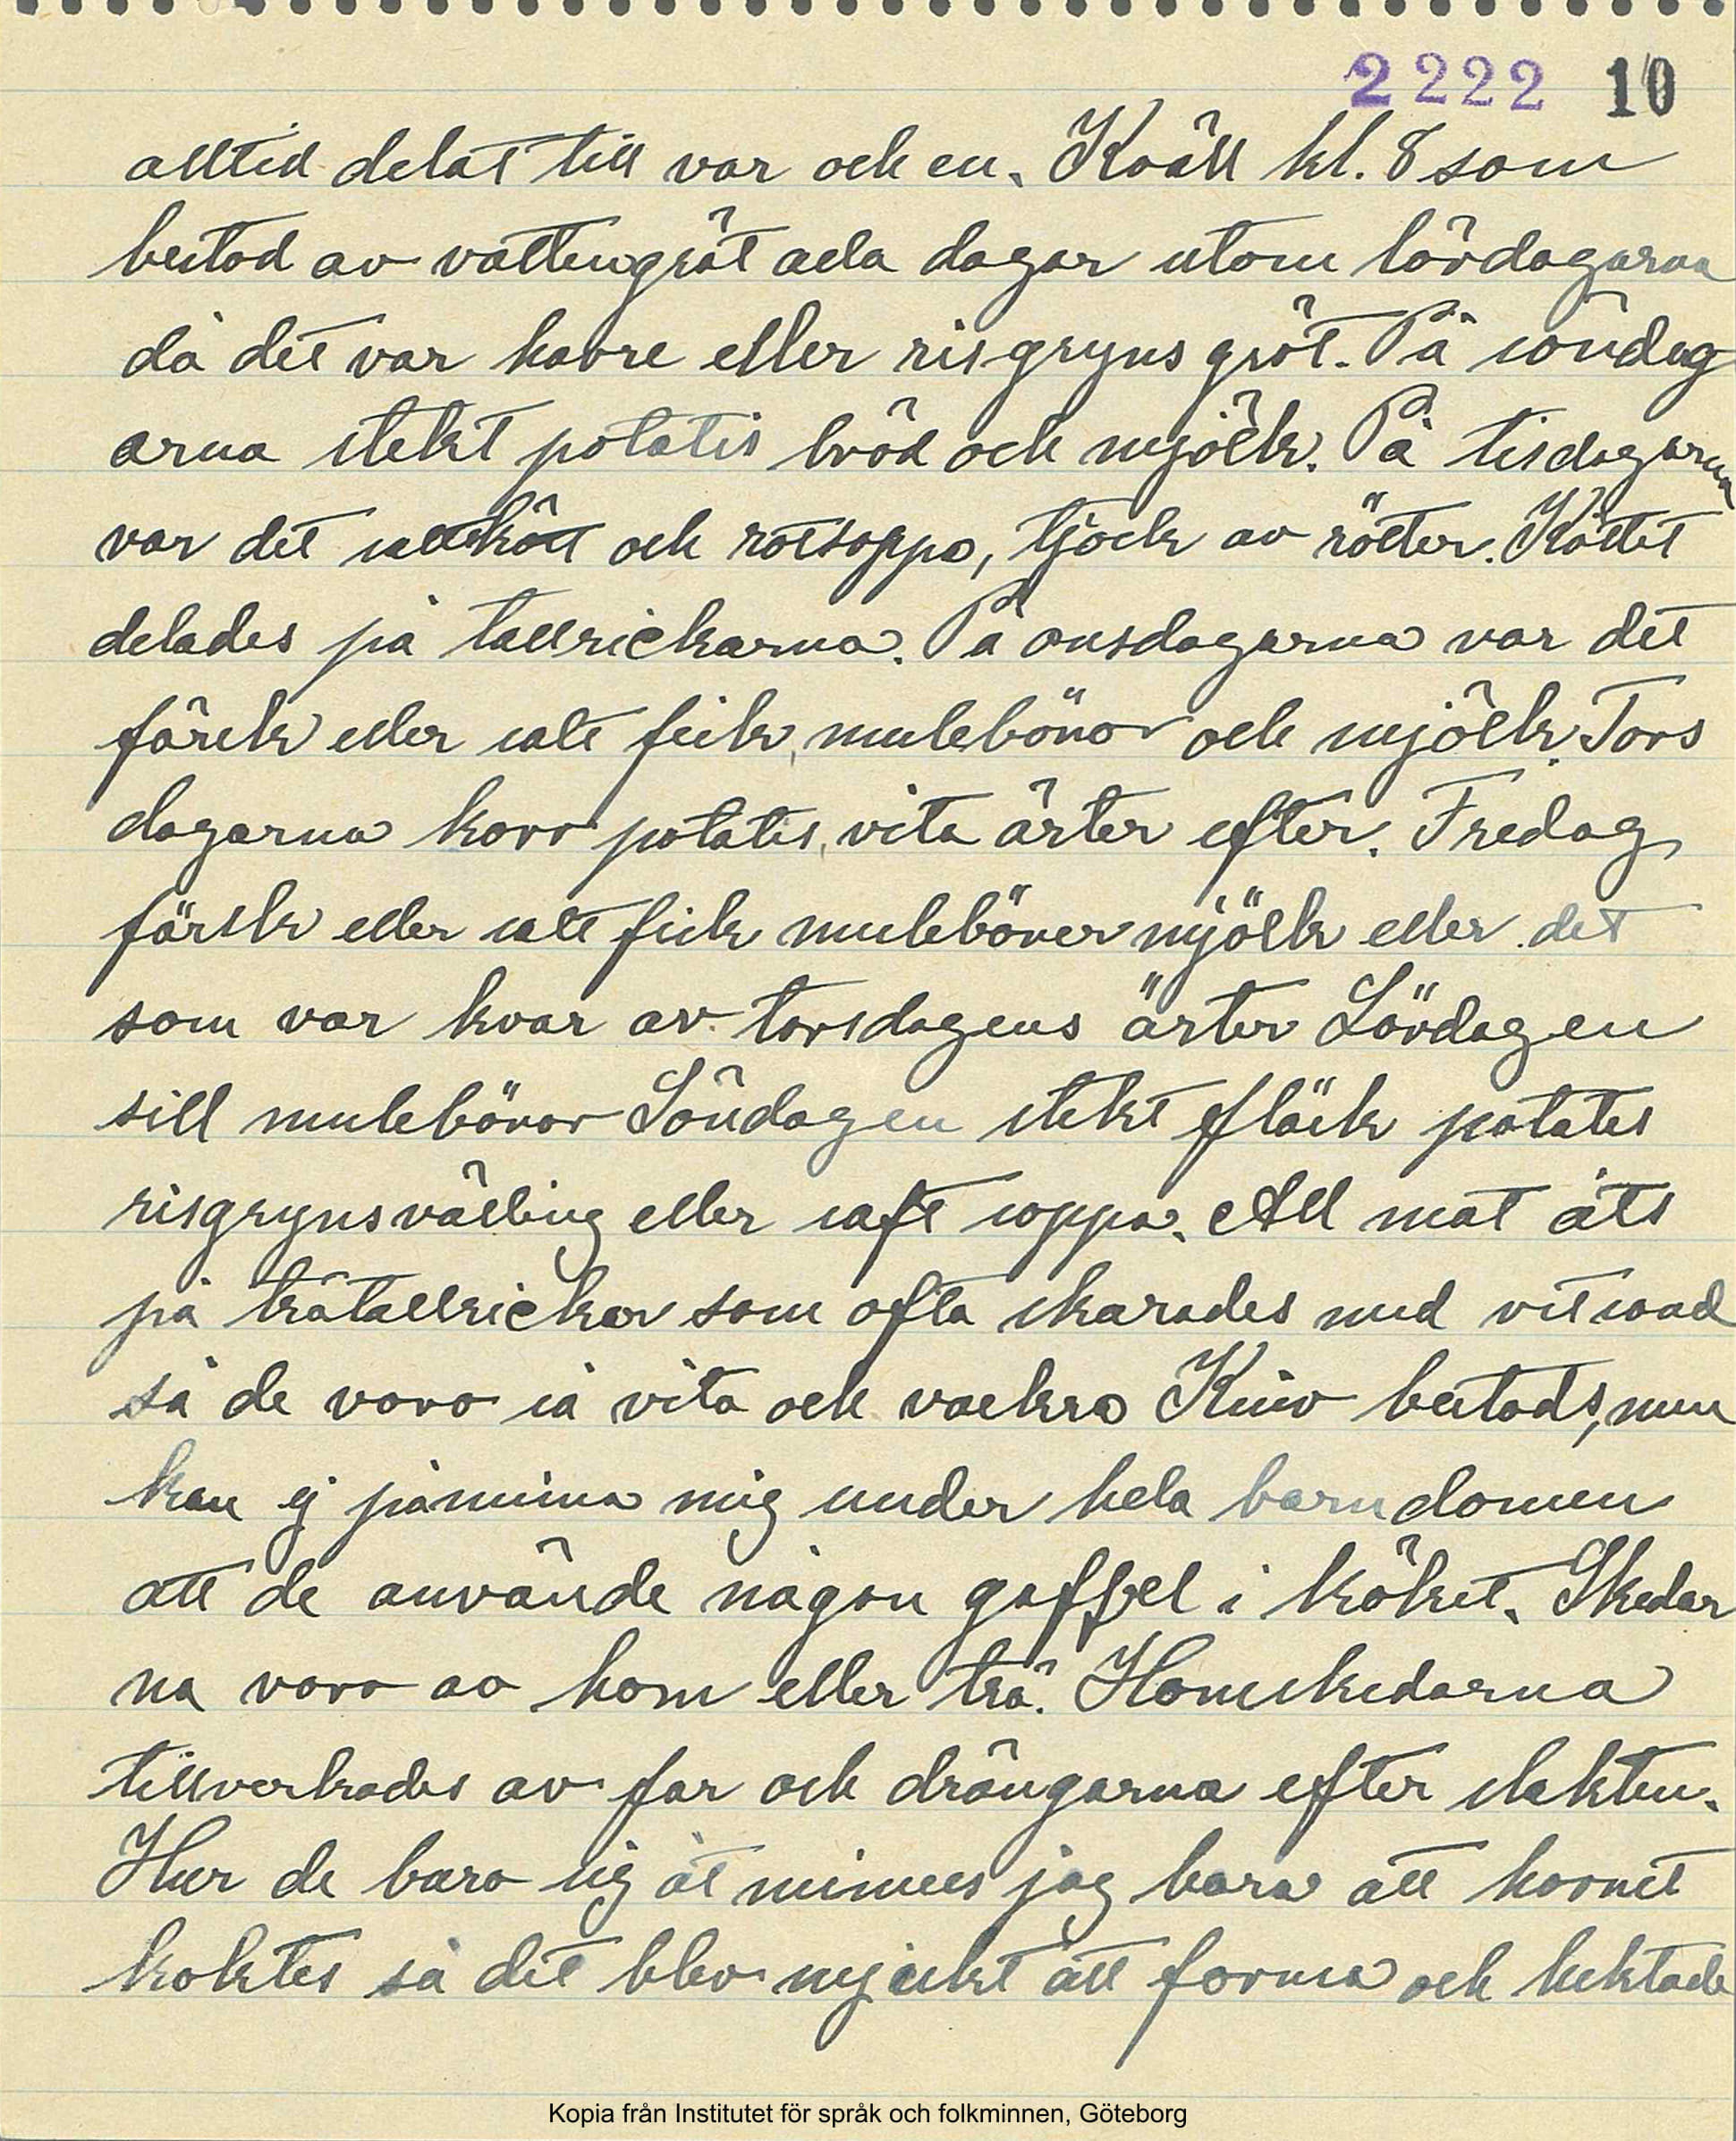 2222 10
alltid delat till var och en. Kväll kl. 8 som
bestod av vattengröt alla dagar utom lördagarna
då det var havre eller risgryns gröt. På söndag
arna stekt potatis bröd och mjölk. På tisdagarna
var det saltkött och rotsoppa, tjock av rötter. Köttet
delades på tallrickarna. På onsdagarna var det
färsk eller salt fisk, mulebönor och mjölk. Tors
dagarna korv potatis, vita ärter efter. Fredag
färsk eller salt fisk mulebönor mjölk eller det
som var kvar av torsdagens ärter Lördagen
sill mulebönor Söndagen stekt fläsk potatis
risgrynsvälling eller saft soppa. All mat åts
på trätallrickar som ofta skurades med vit sand
så de voro så vita och vackra Kniv bestods, men
kan ej påminna mig under hela barndomen
att de använde någon gaffel i köket. Skedar
na voro av horn eller trä. Hornskedarna
tillverkades av far och drängarna efter slakten.
Hur de bara sig åt minnes jag bara att hornet
koktes så det blev mjukt att forma och luktade
Kopia från Institutet för språk och folkminnen, Göteborg